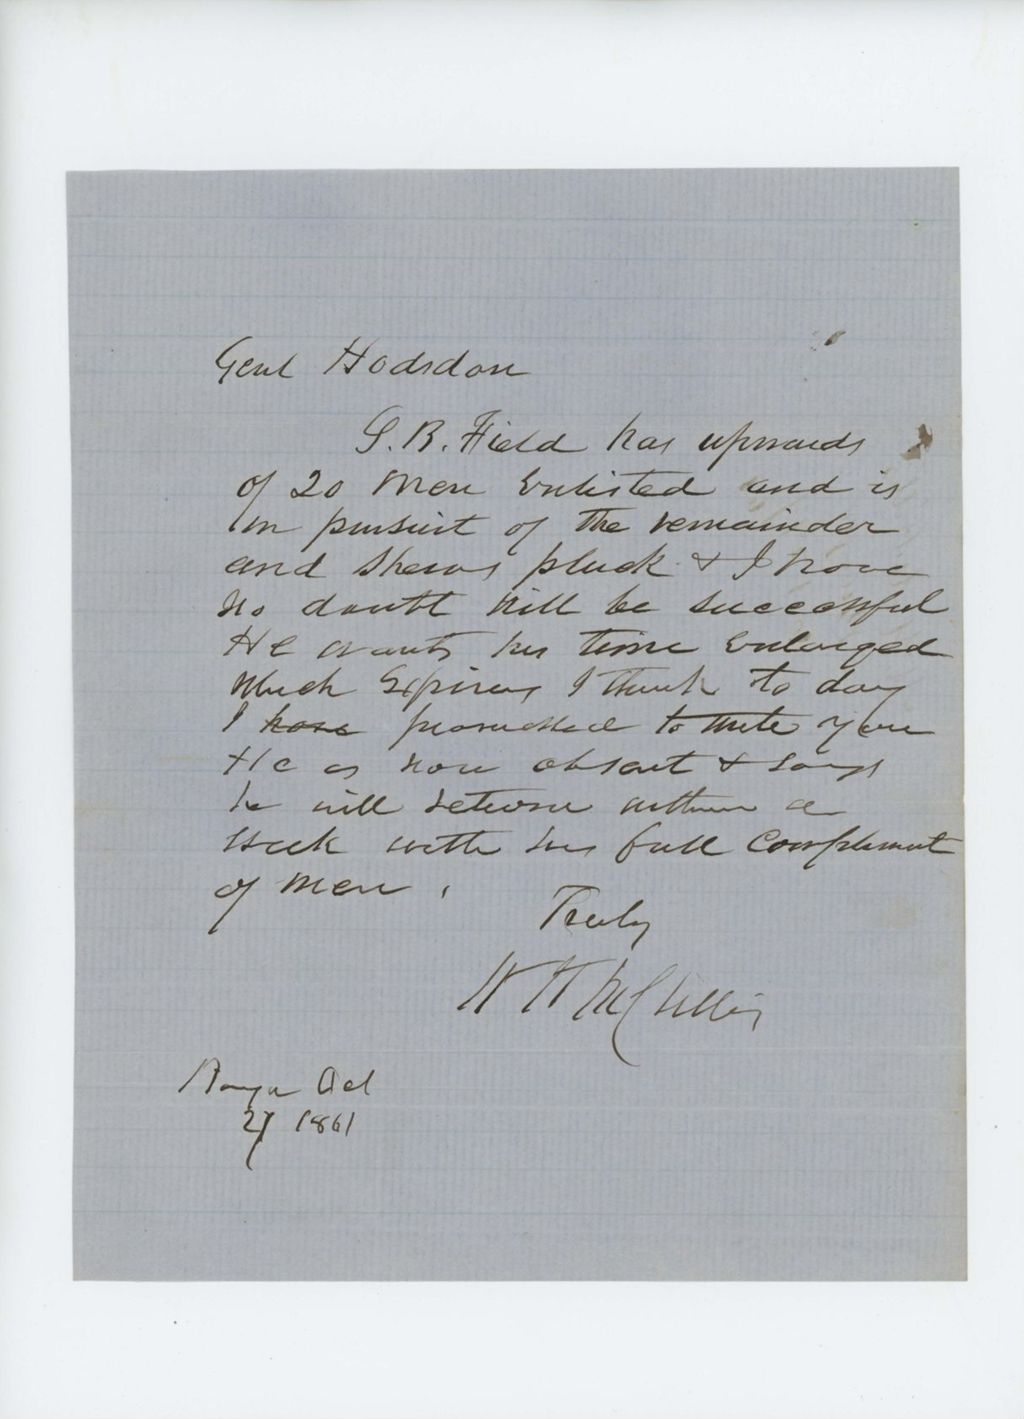 Genl Hodsdon
G. B. Field has upwards
of 20 Men Enlisted and is
in pursuit of the remainder
and shews pluck & I have
no doubt will be successful
He wants his time Enlarged
which Expires I think to day
I have promised to write you
He is now absent & says
he will return within a
week with his full Complement
of Men.
Truly
W H McCrillis
Bangor Oct
27 1861